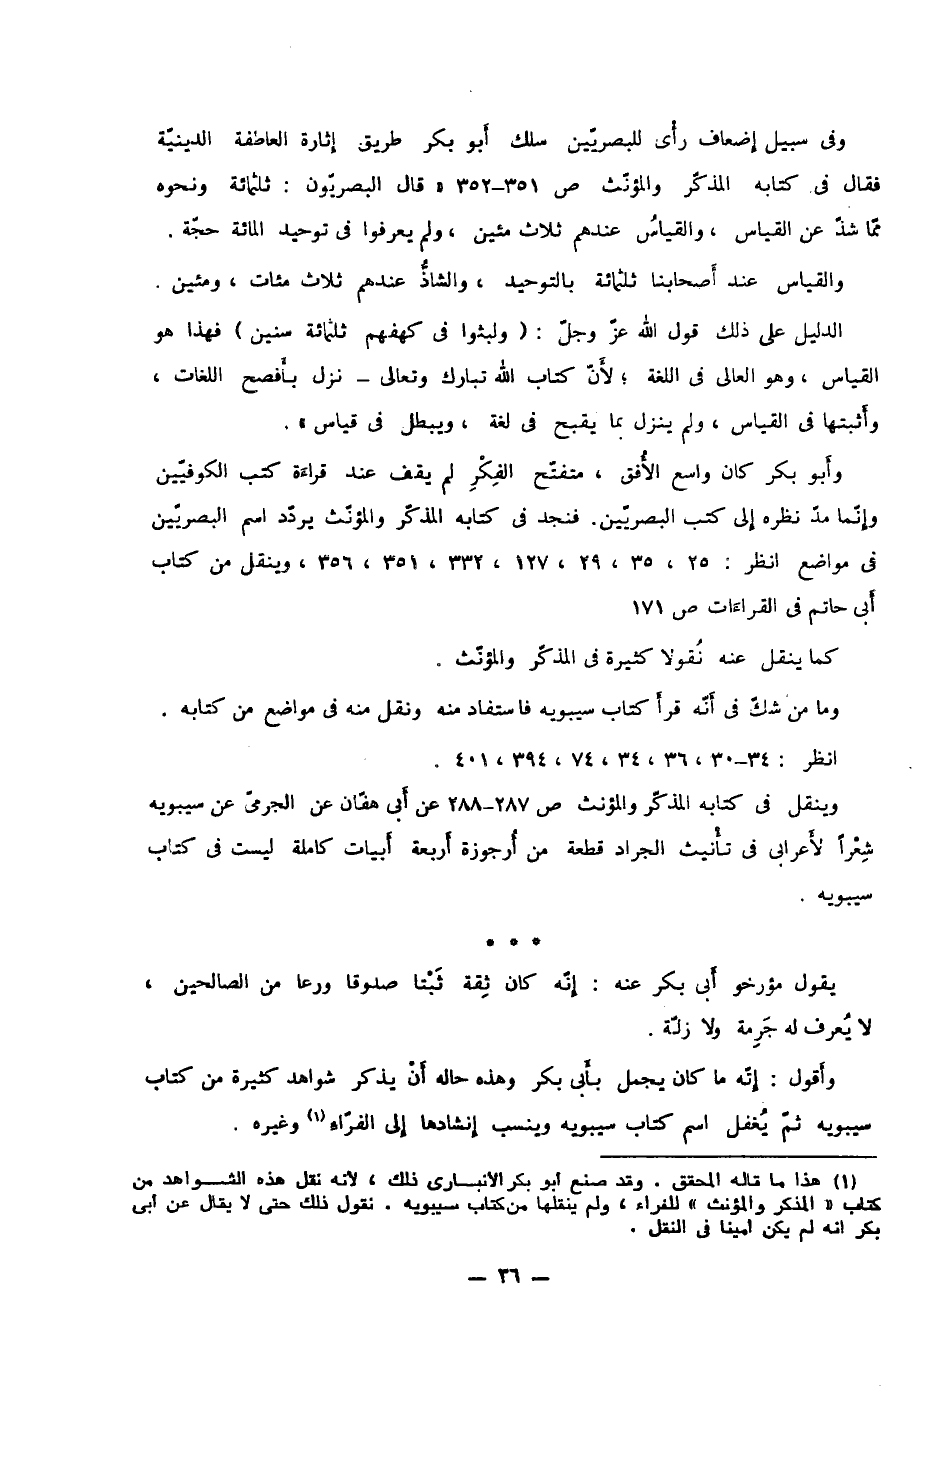 وفى سبيل إضعاف رأْى للبصريّين سلك أَبو بكر طريق إثارة العاطفة الدينيّة
فقال فى كتابه المذكّر والمؤنّث ص ٣٥١–٣٥٢ « قال البصريّون : ثلثمائة ونحوه
ممّا شذّ عن القياس ، والقياسُ عندهم ثلاث مئين ، ولم يعرفوا فى توحيد المائة حجّة .
والقياس عند أَصحابنا ثلثمائة بالتوحيد ، والشاذُّ عندهم ثلاث مئات ، ومئين .
الدليل على ذلك قول الله عزّ وجلّ : ( ولبثوا فى كهفهم ثلثمائة سنين ) فهذا هو
القياس ، وهو العالى فى اللغة ؛ لأَنّ كتاب الله تبارك وتعالى – نزل بأَفصح اللغات ،
وأَثبتها فى القياس ، ولم ينزل بما يقبح فى لغة ، ويبطل فى قياس » .
وأَبو بكر كان واسع الأُفق ، متفتّح الفِكْرِ لم يقف عند قراءة كتب الكوفيّين
وإنّما مدّ نظره إلى كتب البصريّين. فنجد فى كتابه المذكّر والمؤنّث يردّد اسم البصريّين
فى مواضع انظر : ٢٥ ، ٣٥ ، ٢٩ ، ١٢٧ ، ٣٣٢ ، ٣٥١ ، ٣٥٦ ، وينقل من كتاب
أَبى حاتم فى القراءَات ص ١٧١
كما ينقل عنه نُقولا كثيرة فى المذكّر والمؤنّث .
وما من شكّ فى أَنّه قرأَ كتاب سيبويه فاستفاد منه ونقل منه فى مواضع من كتابه .
انظر : ٣٤–٣٠ ، ٣٦ ، ٣٤ ، ٧٤ ، ٣٩٤ ، ٤٠١ .
وينقل فى كتابه المذكّر والمؤنث ص ٢٨٧–٢٨٨ عن أَبى هفّان عن الجرمىّ عن سيبويه
شِعْراً لأَعرابى فى تأْنيث الجراد قطعة من أُرجوزة أربعة أَبيات كاملة ليست فى كتاب
سيبويه .
* * *
يقول مؤرخو أَبى بكر عنه : إنّه كان ثِقة ثَبْتا صدوقا ورعا من الصالحين ،
لا يُعرف له جَرِمة ولا زلّة .
وأَقول : إنّه ما كان يجمل بأَبى بكر وهذه حاله أَنْ يذكر شواهد كثيرة من كتاب
سيبويه ثمّ يُغفل اسم كتاب سيبويه وينسب إنشادها إلى الفرّاء(١) وغيره .
(١) هذا ما قاله المحقق . وقد صنع أبو بكر الأنبارى ذلك ، لأنه نقل هذه الشواهد من
كتاب « المذكر والمؤنث » للفراء ، ولم ينقلها من كتاب سيبويه . نقول ذلك حتى لا يقال عن أبى
بكر انه لم يكن أمينا فى النقل .
— ٣٦ —